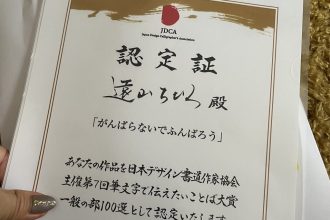 JDCA
Japan Design Calligrapher's Association
認定証
遠山ちひろ 殿
「がんばらないでふんばろう」
あなたの作品を日本デザイン書道作家協会
主催第7回筆文字で伝えたいことば大賞
一般の部100選として認定いたします